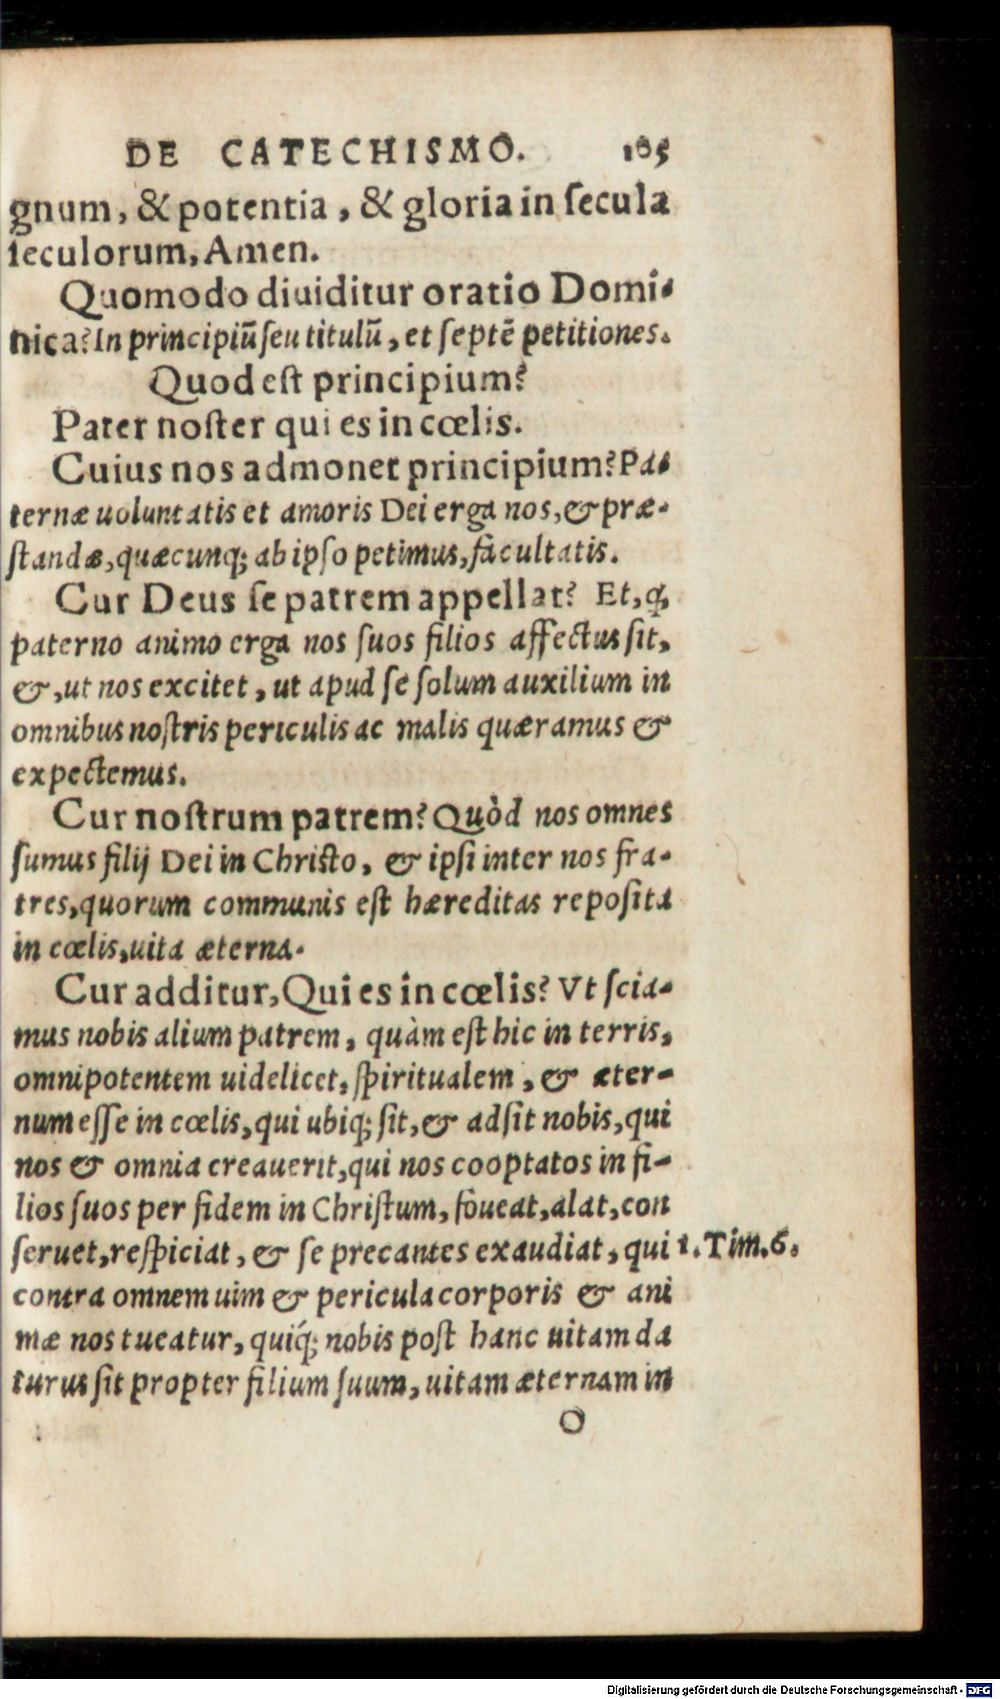 DE CATECHISMO. 105
gnum, & potentia, & gloria in ſecula
ſeculorum, Amen.
Quomodo diuiditur oratio Domi-
nica? In principiũ ſeu titulũ, et ſeptẽ petitiones.
Quod eſt principium?
Pater noſter qui es in cœlis.
Cuius nos admonet principium? Pa-
ternæ uoluntatis et amoris Dei erga nos, & præ-
ſtandæ, quæcunq; ab ipſo petimus, facultatis.
Cur Deus ſe patrem appellat? Et, ꝙ
paterno animo erga nos ſuos filios affectus ſit,
&, ut nos excitet, ut apud ſe ſolum auxilium in
omnibus noſtris periculis ac malis quæramus &
expectemus.
Cur noſtrum patrem? Quòd nos omnes
ſumus filij Dei in Chriſto, & ipſi inter nos fra-
tres, quorum communis eſt hæreditas repoſita
in cœlis, uita æterna.
Cur additur, Qui es in cœlis? Vt ſcia-
mus nobis alium patrem, quàm eſt hic in terris,
omnipotentem uidelicet, ſpiritualem, & æter-
num eſſe in cœlis, qui ubiq; ſit, & adſit nobis, qui
nos & omnia creauerit, qui nos cooptatos in fi-
lios ſuos per fidem in Chriſtum, foueat, alat, con
ſeruet, reſpiciat, & ſe precantes exaudiat, qui 1. Tim. 6.
contra omnem uim & pericula corporis & ani
mæ nos tueatur, quiq́; nobis poſt hanc uitam da
turus ſit propter filium ſuum, uitam æternam in
O
Digitalisierung gefördert durch die Deutsche Forschungsgemeinschaft - DFG